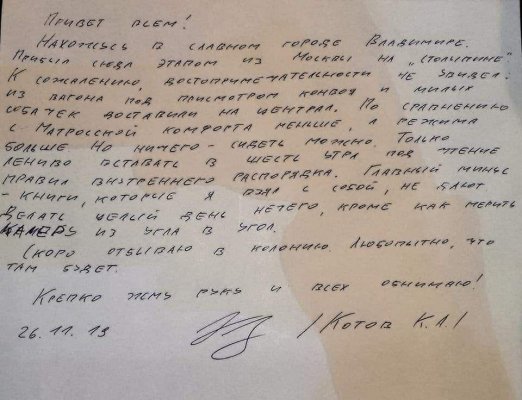 Привет всем!
Нахожусь в славном городе Владимире.
Прибыл сюда этапом из Москвы на „столыпине“.
К сожалению, достопримечательности не увидел:
из вагона под присмотром конвоя и милых
собачек доставили на централ. По сравнению
с Матросской комфорта меньше, а режима
больше. Но ничего - сидеть можно. Только
лениво вставать в шесть утра под чтение
правил внутреннего распорядка. Главный минус
- книги, которые я взял с собой, не дают.
Делать целый день нечего, кроме как мерить
камеру из угла в угол.
Скоро отбываю в колонию. Любопытно, что
там будет.
Крепко жму руку и всех обнимаю!
26.11.19 /Котов К.А./